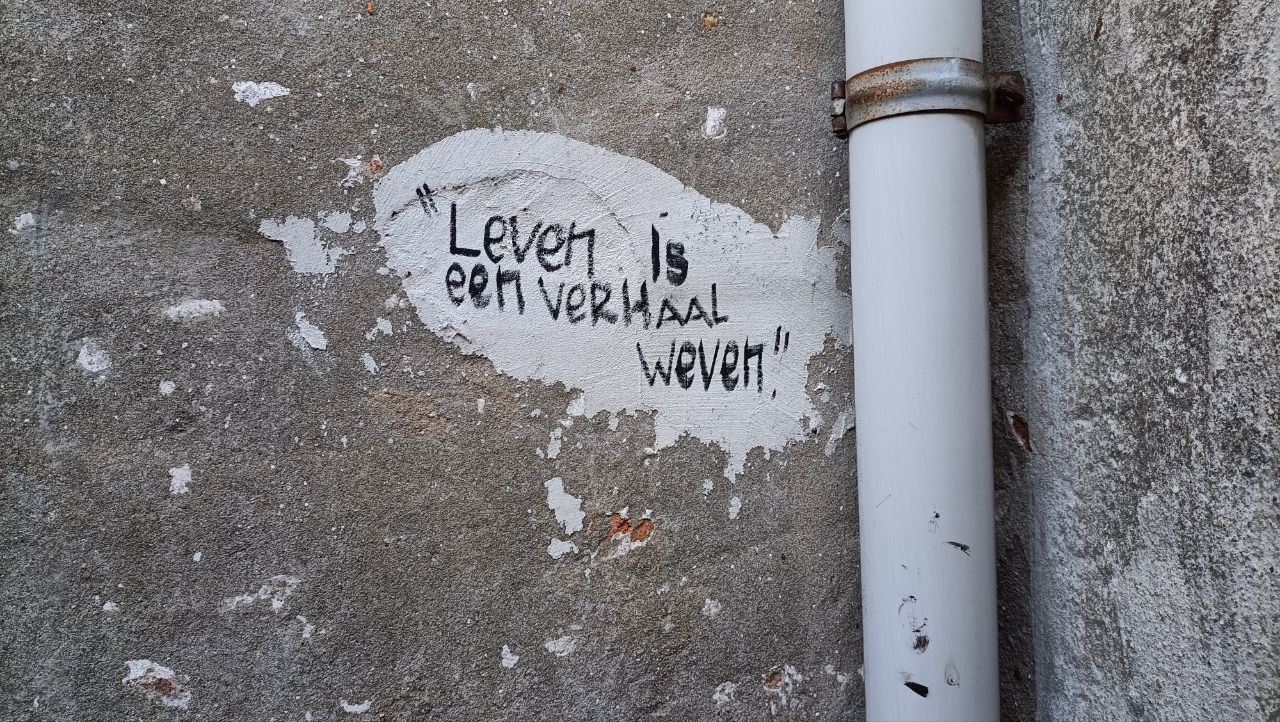 "Leven is
een VERHAAL
weven."